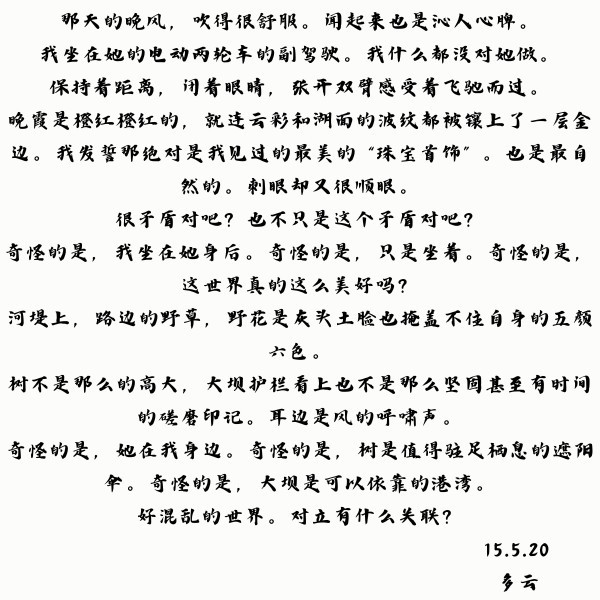 那天的晚风，吹得很舒服。闻起来也是沁人心脾。
我坐在她的电动两轮车的副驾驶。我什么都没对她做。
保持着距离，闭着眼睛，张开双臂感受着飞驰而过。
晚霞是橙红橙红的，就连云彩和湖面的波纹都被镶上了一层金
边。我发誓那绝对是我见过的最美的“珠宝首饰”。也是最自
然的。刺眼却又很顺眼。
很矛盾对吧？也不只是这个矛盾对吧？
奇怪的是，我坐在她身后。奇怪的是，只是坐着。奇怪的是，
这世界真的这么美好吗？
河堤上，路边的野草，野花是灰头土脸也掩盖不住自身的五颜
六色。
树不是那么的高大，大坝护栏看上也不是那么坚固甚至有时间
的磋磨印记。耳边是风的呼啸声。
奇怪的是，她在我身边。奇怪的是，树是值得驻足栖息的遮阳
伞。奇怪的是，大坝是可以依靠的港湾。
好混乱的世界。对立有什么关联？
15.5.20
多云